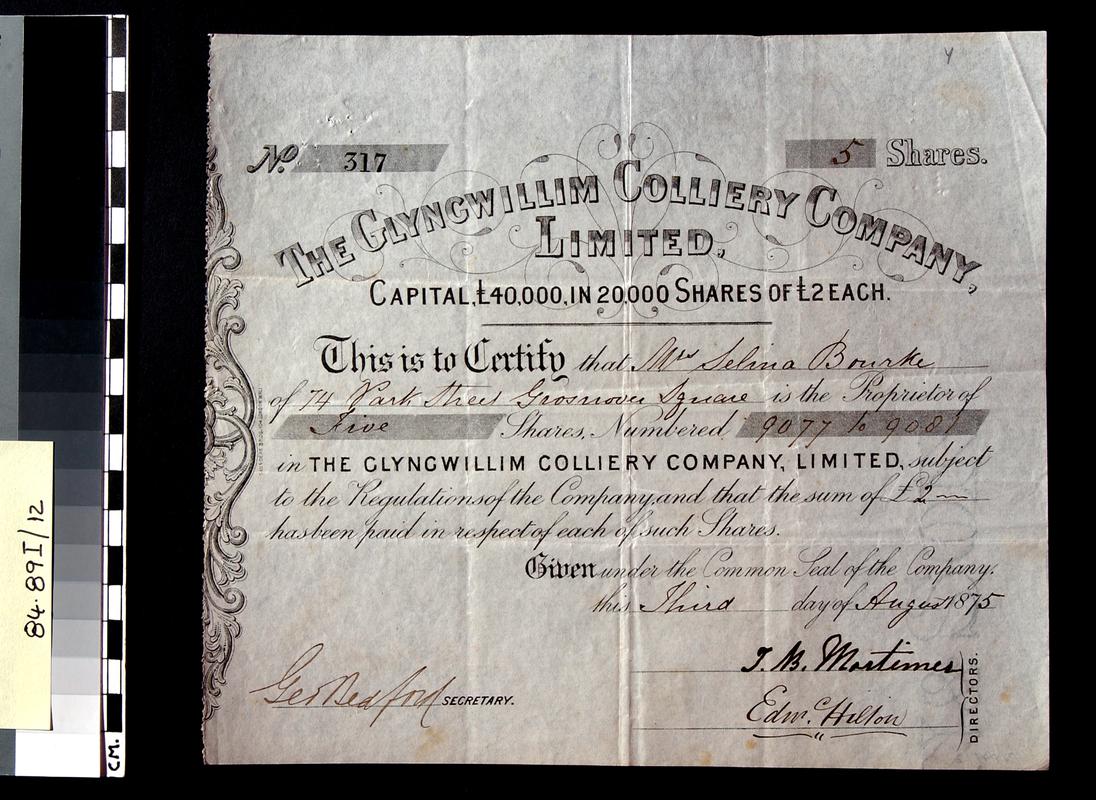 No. 317
5 Shares.
THE GLYNCWILLIM COLLIERY COMPANY,
LIMITED,
CAPITAL, £40,000, IN 20,000 SHARES OF £2 EACH.
This is to Certify that Mrs Selina Bourke
of 74 Park Street Grosvenor Square is the Proprietor of
Five Shares, Numbered 9077 to 9081
in THE GLYNCWILLIM COLLIERY COMPANY, LIMITED, subject
to the Regulations of the Company, and that the sum of £2
has been paid in respect of each of such Shares.
Given under the Common Seal of the Company,
this Third day of August 1875
T. B. Mortimer
Geo Bedford SECRETARY.
Edw. Hilton
DIRECTORS.
84.89I/12
CM.